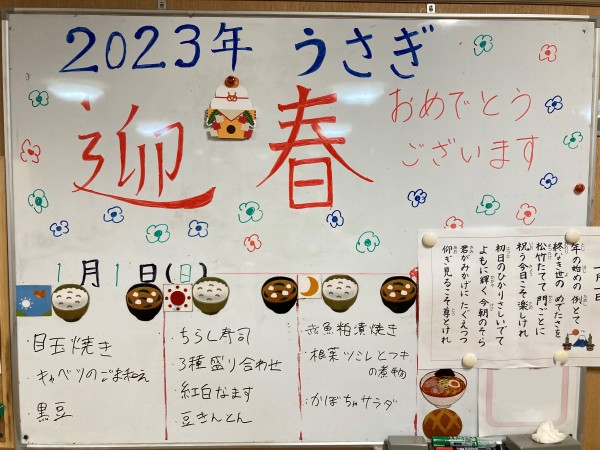 2023年 うさぎ
迎春
おめでとう
ございます
1月1日(日)
目玉焼き
・キャベツのごま和え
・黒豆
・ちらし寿司
・3種盛り合わせ
・紅白なます
・豆きんとん
・赤魚粕漬焼き
・根菜ツミレとフキ
の煮物
・かぼちゃサラダ
一月一日
年の始めの 例とて
終なき世の めでたさを
松竹たてて 門ごとに
祝う今日こそ 楽しけれ
初日のひかり さしいでて
よもに輝く 今朝のそら
君がみかげに たぐえつつ
仰ぎ見るこそ 尊とけれ